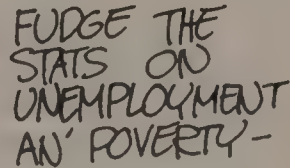 FUDGE THE
STATS ON
UNEMPLOYMENT
AN' POVERTY-